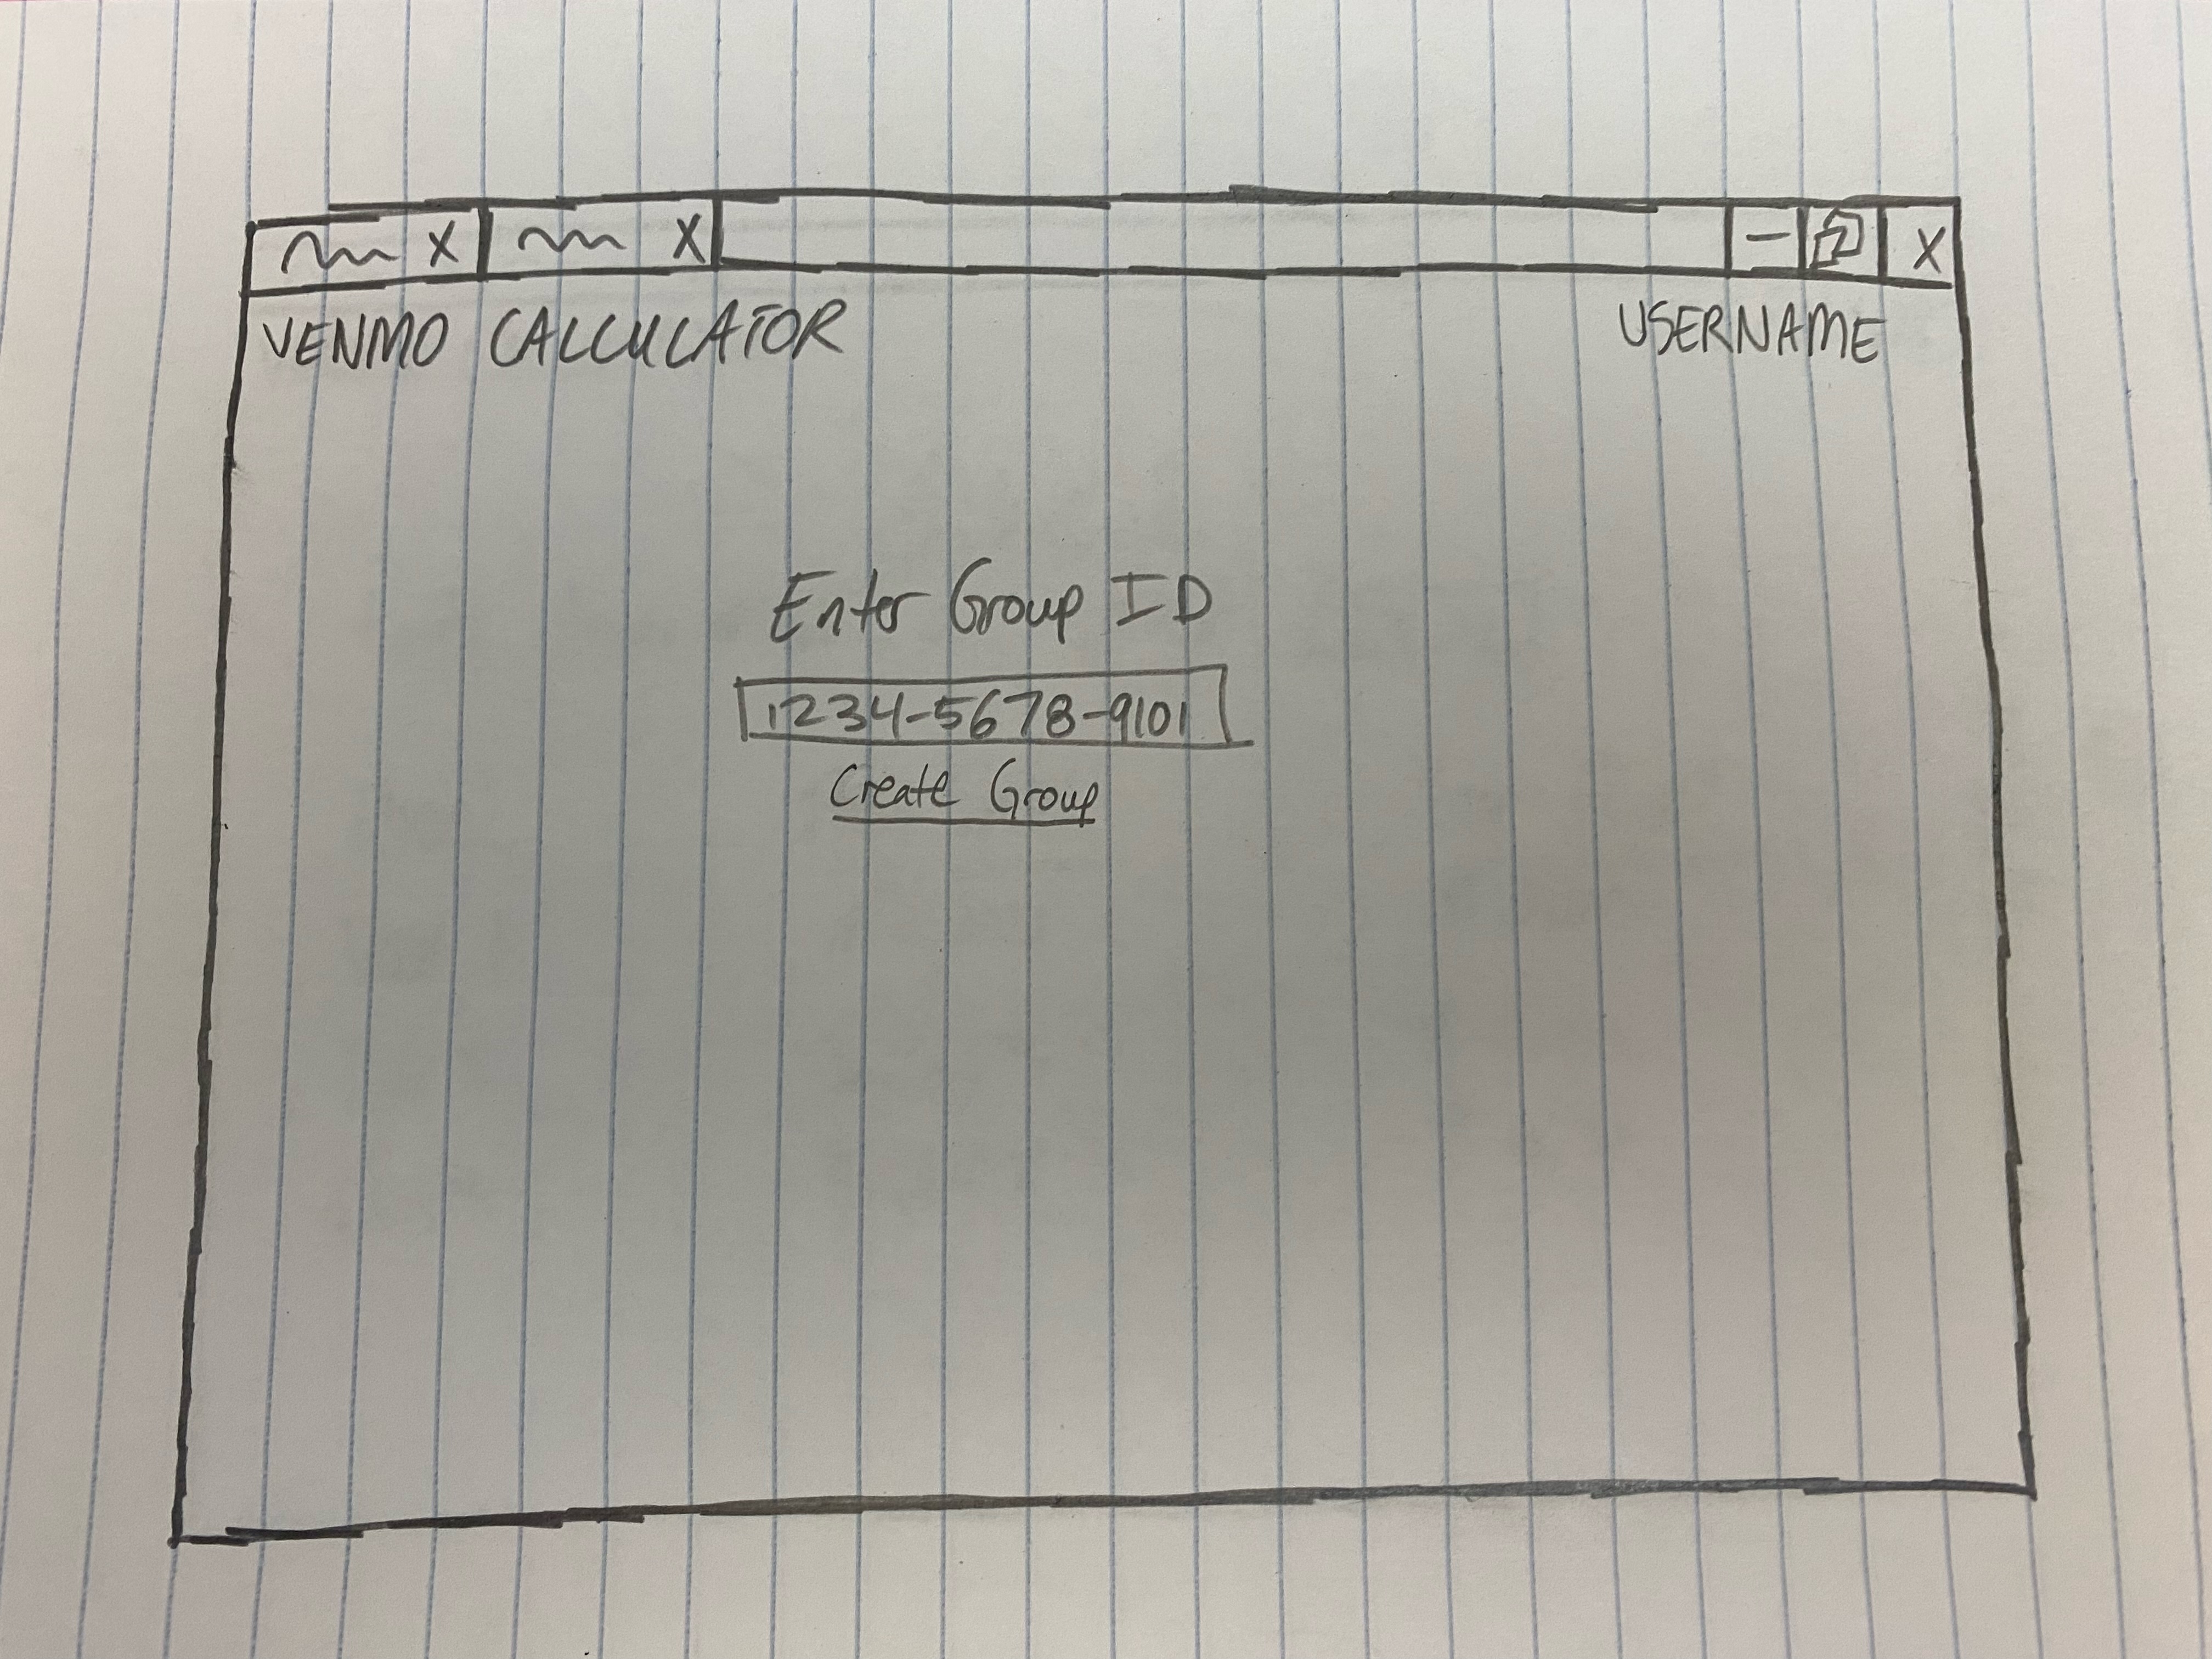 X X - X
VENMO CALCULATOR USERNAME
Enter Group ID
1234-5678-9101
Create Group